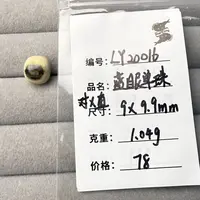 编号: LY20016
品名: 蓝眼单珠
对X真
尺寸: 9X9.9mm
克重: 1.04g
价格: 78